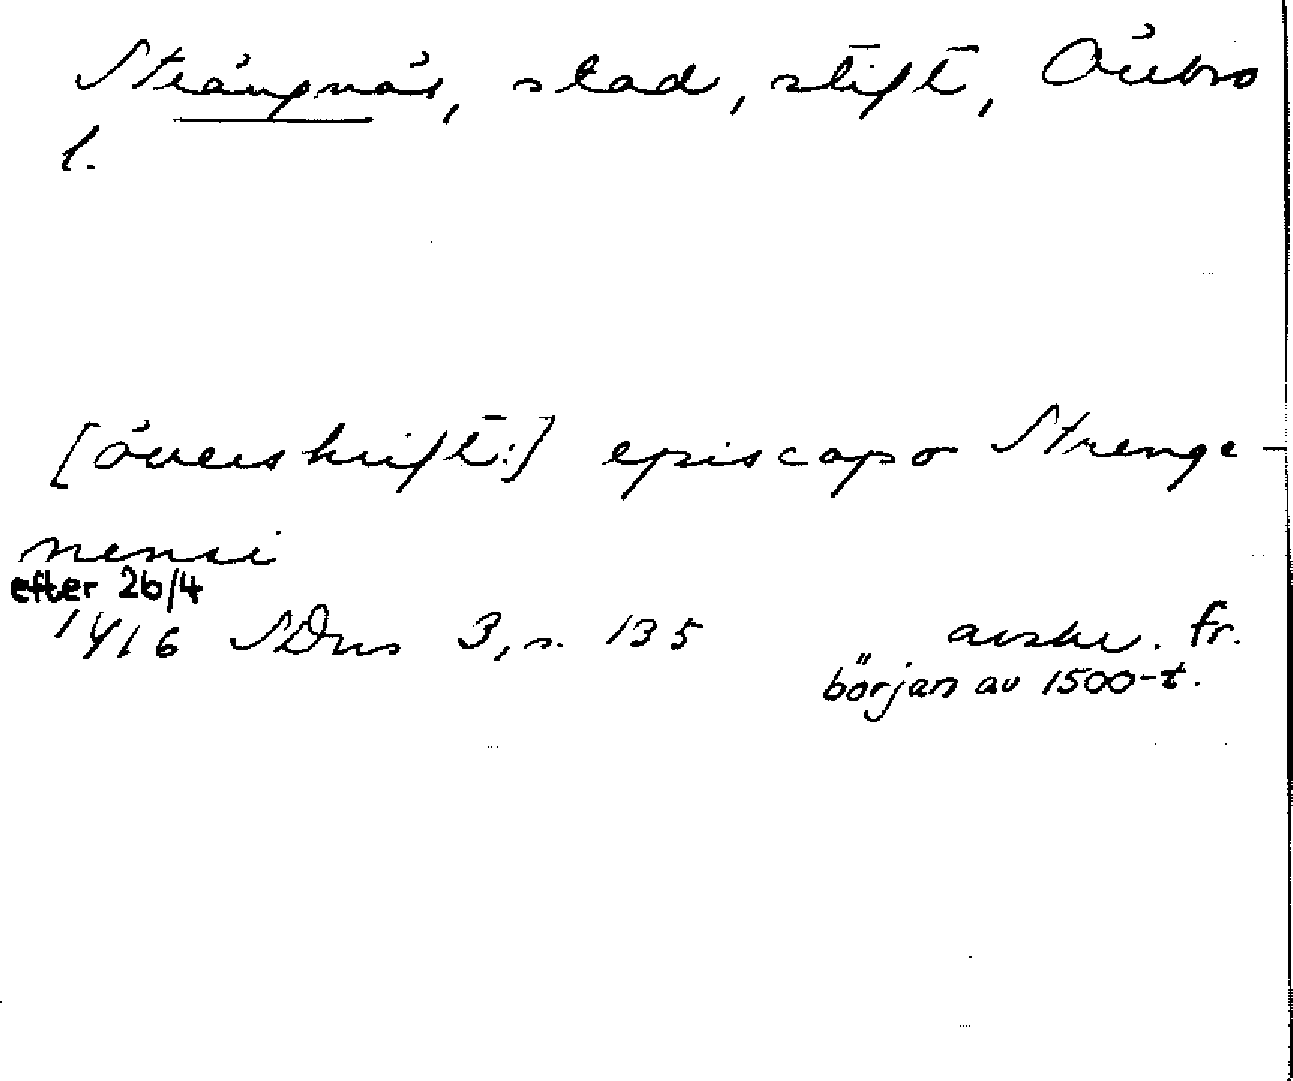 Strängnäs, stad, stift, Örebro
l.
[överskrift:] episcopo Strenge-
nensi
efter 26/4
1416 SDns 3, s. 135 avskr. fr.
början av 1500-t.